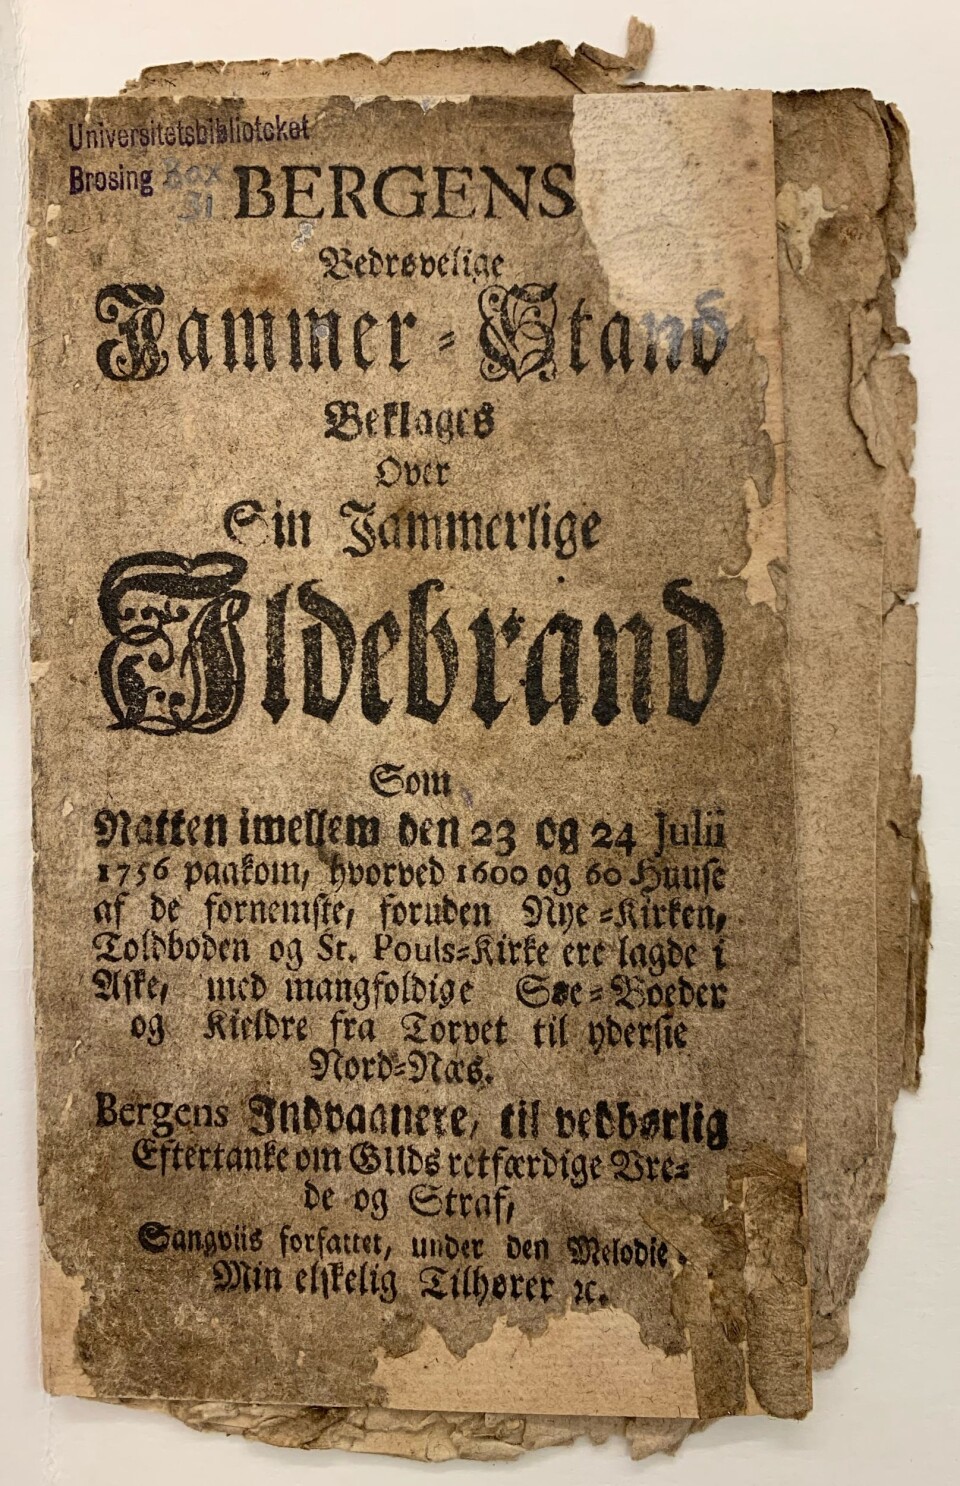 Universitetsbiblioteket
Brosing Box
31
BERGENS
Bedrøvelige
Jammer-Stand
Beklages
Over
Sin Jammerlige
Ildebrand
Som
Natten imellem den 23 og 24 Julii
1756 paakom, hvorved 1600 og 60 Huuse
af de fornemste, foruden Nye-Kirken,
Toldboden og St. Pouls-Kirke ere lagde i
Aske, med mangfoldige Søe-Boeder
og Kieldre fra Torvet til yderste
Nord-Næs.
Bergens Indvaanere, til vedbørlig
Eftertanke om GUds retfærdige Vre-
de og Straf,
Sangviis forfattet, under den Melodie.
Min elskelig Tilhører ꝛc.